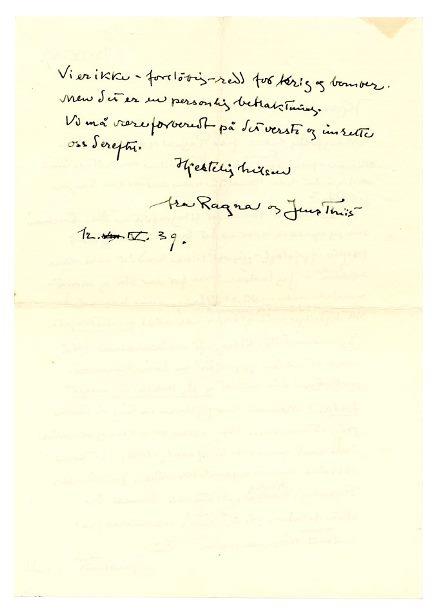 Vi er ikke – foreløbig – redd for krig og bomber.
Men det er en personlig betraktning.
Vi må være forberedt på det verste og inrette
oss derefter.
Hjertelig hilsen
fra Ragna og Jens Thiis
12. IV. 39.